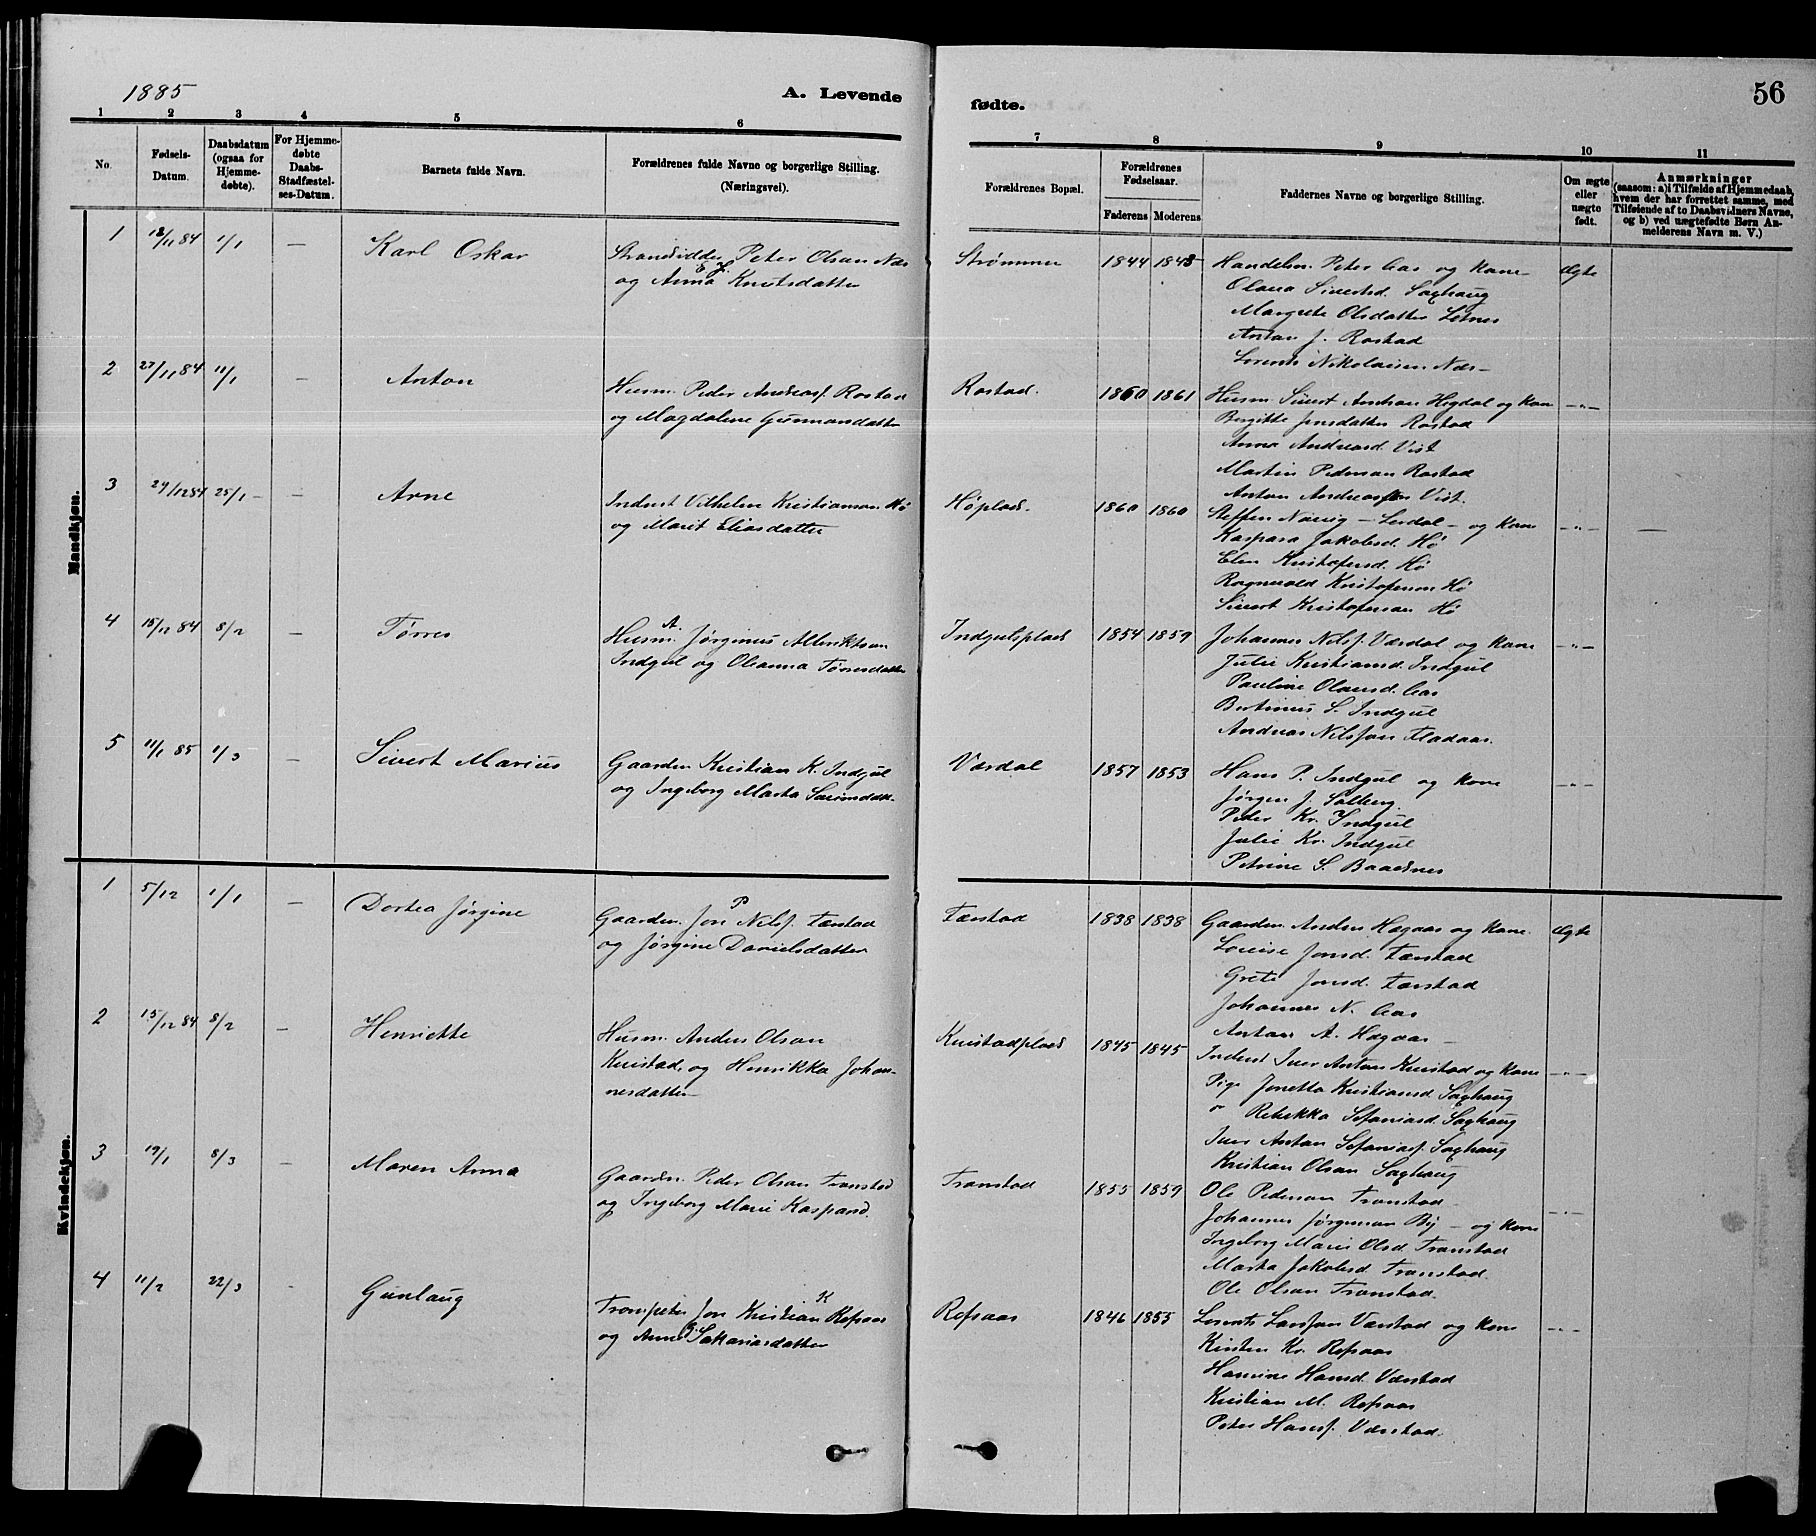 1885
A. Levende
1 2 3 4 5 6
No.
Fødsels-Datum.
Daabsdatum (ogsaa for Hjemmedøbte).
For Hjemmedøbte Daabs-Stadfæstelses-Datum.
Barnets fulde Navn.
Forældrenes fulde Navne og borgerlige Stilling.
(Næringsvei).
Mandkjøn.
1 12/11 84 1/1 — Karl Oskar
Strandsidder Peter Olsen Næs
og Anna Knutsdatter
2 27/11 84 11/1 — Anton
Husm. Peder Andreasf. Rostad
og Magdalene Gunnarsdatter
3 29/12 84 25/1 — Arne
Inderst Vilhelm Kristiansen Hø
og Marit Eliasdatter
4 15/12 84 8/2 — Tørres
A.
Husm. Jørginus Albriktsen
Indgul og Olianna Tørresdatter
5 11/1 85 1/3 — Sivert Marius
Gaardm. Kristian K. Indgul
og Ingeborg Marta
Kvindekjøn.
1 5/12 1/1 — Dortea Jørgine
P
Gaardm. Jon Nilsf. Tærstad
og Jørgine Danielsdatter
2 15/12 84 8/2 — Henriette
Husm. Anders Olsen
Knistad, og Henrikka Johan-
nesdatter
3 19/1 8/3 — Maren Anna
Gaardm. Peder Olsen Tronstad
og Ingeborg Marie Kaspard.
4 11/2 22/3 - Gunlaug
K
Trompeter Jon Kristian Refsaas
og Anne G. Sakariasdatter
fødte.
56
7 8 9 10 11
Forældrenes Bopæl.
Forældrenes Fødselsaar.
Faderens Moderens
Faddernes Navne og borgerlige Stilling.
Om ægte eller uægte født.
Anmærkninger
(saasom: a) i Tilfælde af Hjemmedaab,
hvem der har forrettet samme, med
Tilføiende af to Daabsvidners Navne,
og b) ved uægtefødte Børn An-
melderens Navn m. V.)
Strømmen 1844 1843 Handelsm. Peter Aas og Kone Ægte
Olava Sivertsd. Saghaug
Margrete Olsdatter Letnes
Anton J. Rostad
Lorents Nikolaisen Næs
Rostad. 1860 1861 Husm. Sivert Antonsen Hegdal og Kone —"—
Birgitte Jensdatter Rostad
Anna Andreasd. Vist
Martin Pedersen Rostad
Anton Andreassen Vist.
Høplads. 1860 1860 Steffen Nævig — Lerdal — og Kone —"— —
Kaspara Jakobsd. Hø
Elen Kristofersd. Hø
Ragnvald Kristofersen Hø
Sivert Kristofersen Hø
Indgulsplads 1854 1859 Johannes Nilsf. Værdal og Kone —"—
Julie Kristiansd. Indgul
Pauline Olausd. Aas
Bertinus S. Indgul
Andreas Nilssen Fladaas.
Værdal 1857 1853 Hans P. Indgul og Kone —"—
Jørgen J. Solberg.
Peder Kr. Indgul
Julie Kr. Indgul
Petrine S. Baadsnes
Tærstad 1838 1838 Gaardm. Anders Hægaas og Kone. Ægte
Lovise Jonsd. Tærstad
Grete Jonsd. Tærstad
Johannes N. Aas
Anton A. Hægaas
Knistadplads 1845 1845 Inderst Iver Anton Knistad og Kone —"—
Pige Jonetta Kristiansd. Saghaug
" Rebekka Sefaniasd. Saghaug
Iver Anton Sefaniasf. Saghaug
Kristian Olsen Saghaug
Tronstad 1855 1859 Ole Pedersen Tronstad —"—
Johannes Jørgensen By — og Kone
Ingeborg Marie Olsd. Tronstad
Marta Jakobsd. Tronstad.
Ole Olsen Tronstad.
Refsaas 1846 1855 Lorents Larssen Værstad og Kone —"—
Kirsten Kr. Refsaas
Hansine Hansd. Værstad
Kristian M. Refsaas
Peter Hansf. Værstad.